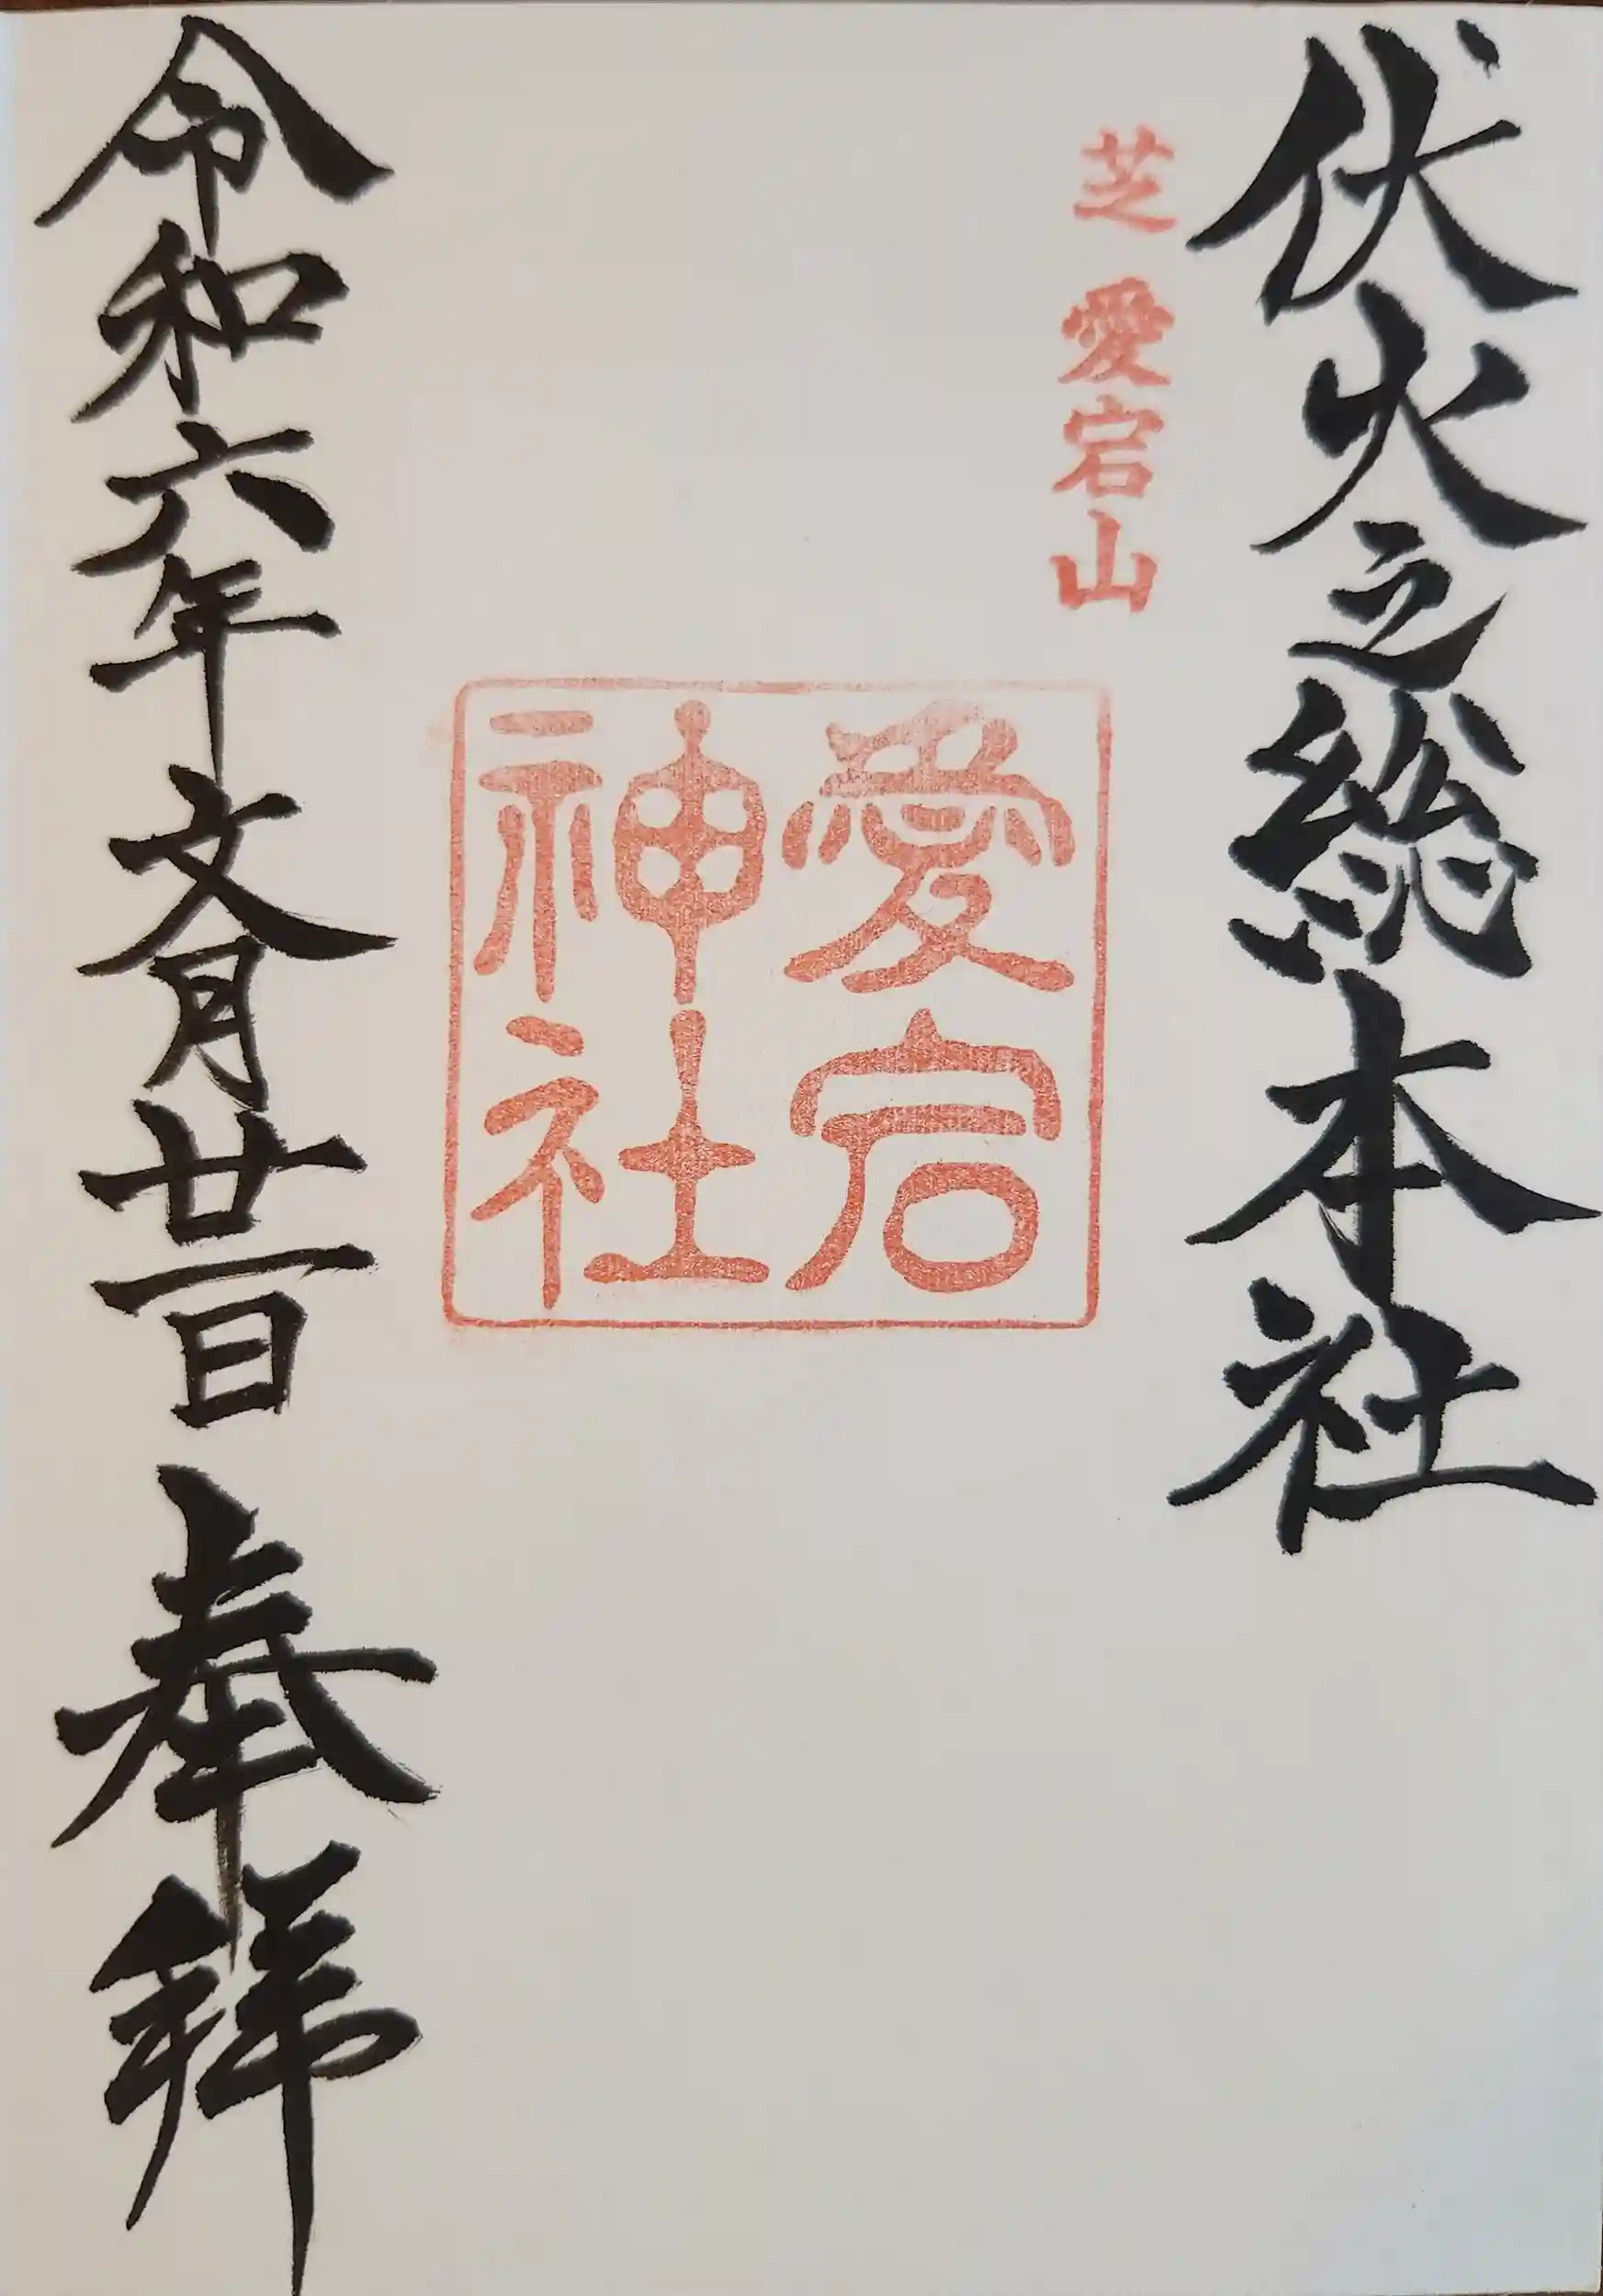 伏火之総本社
芝 愛宕山
愛宕
神社
令和六年文月廿一日 奉拝